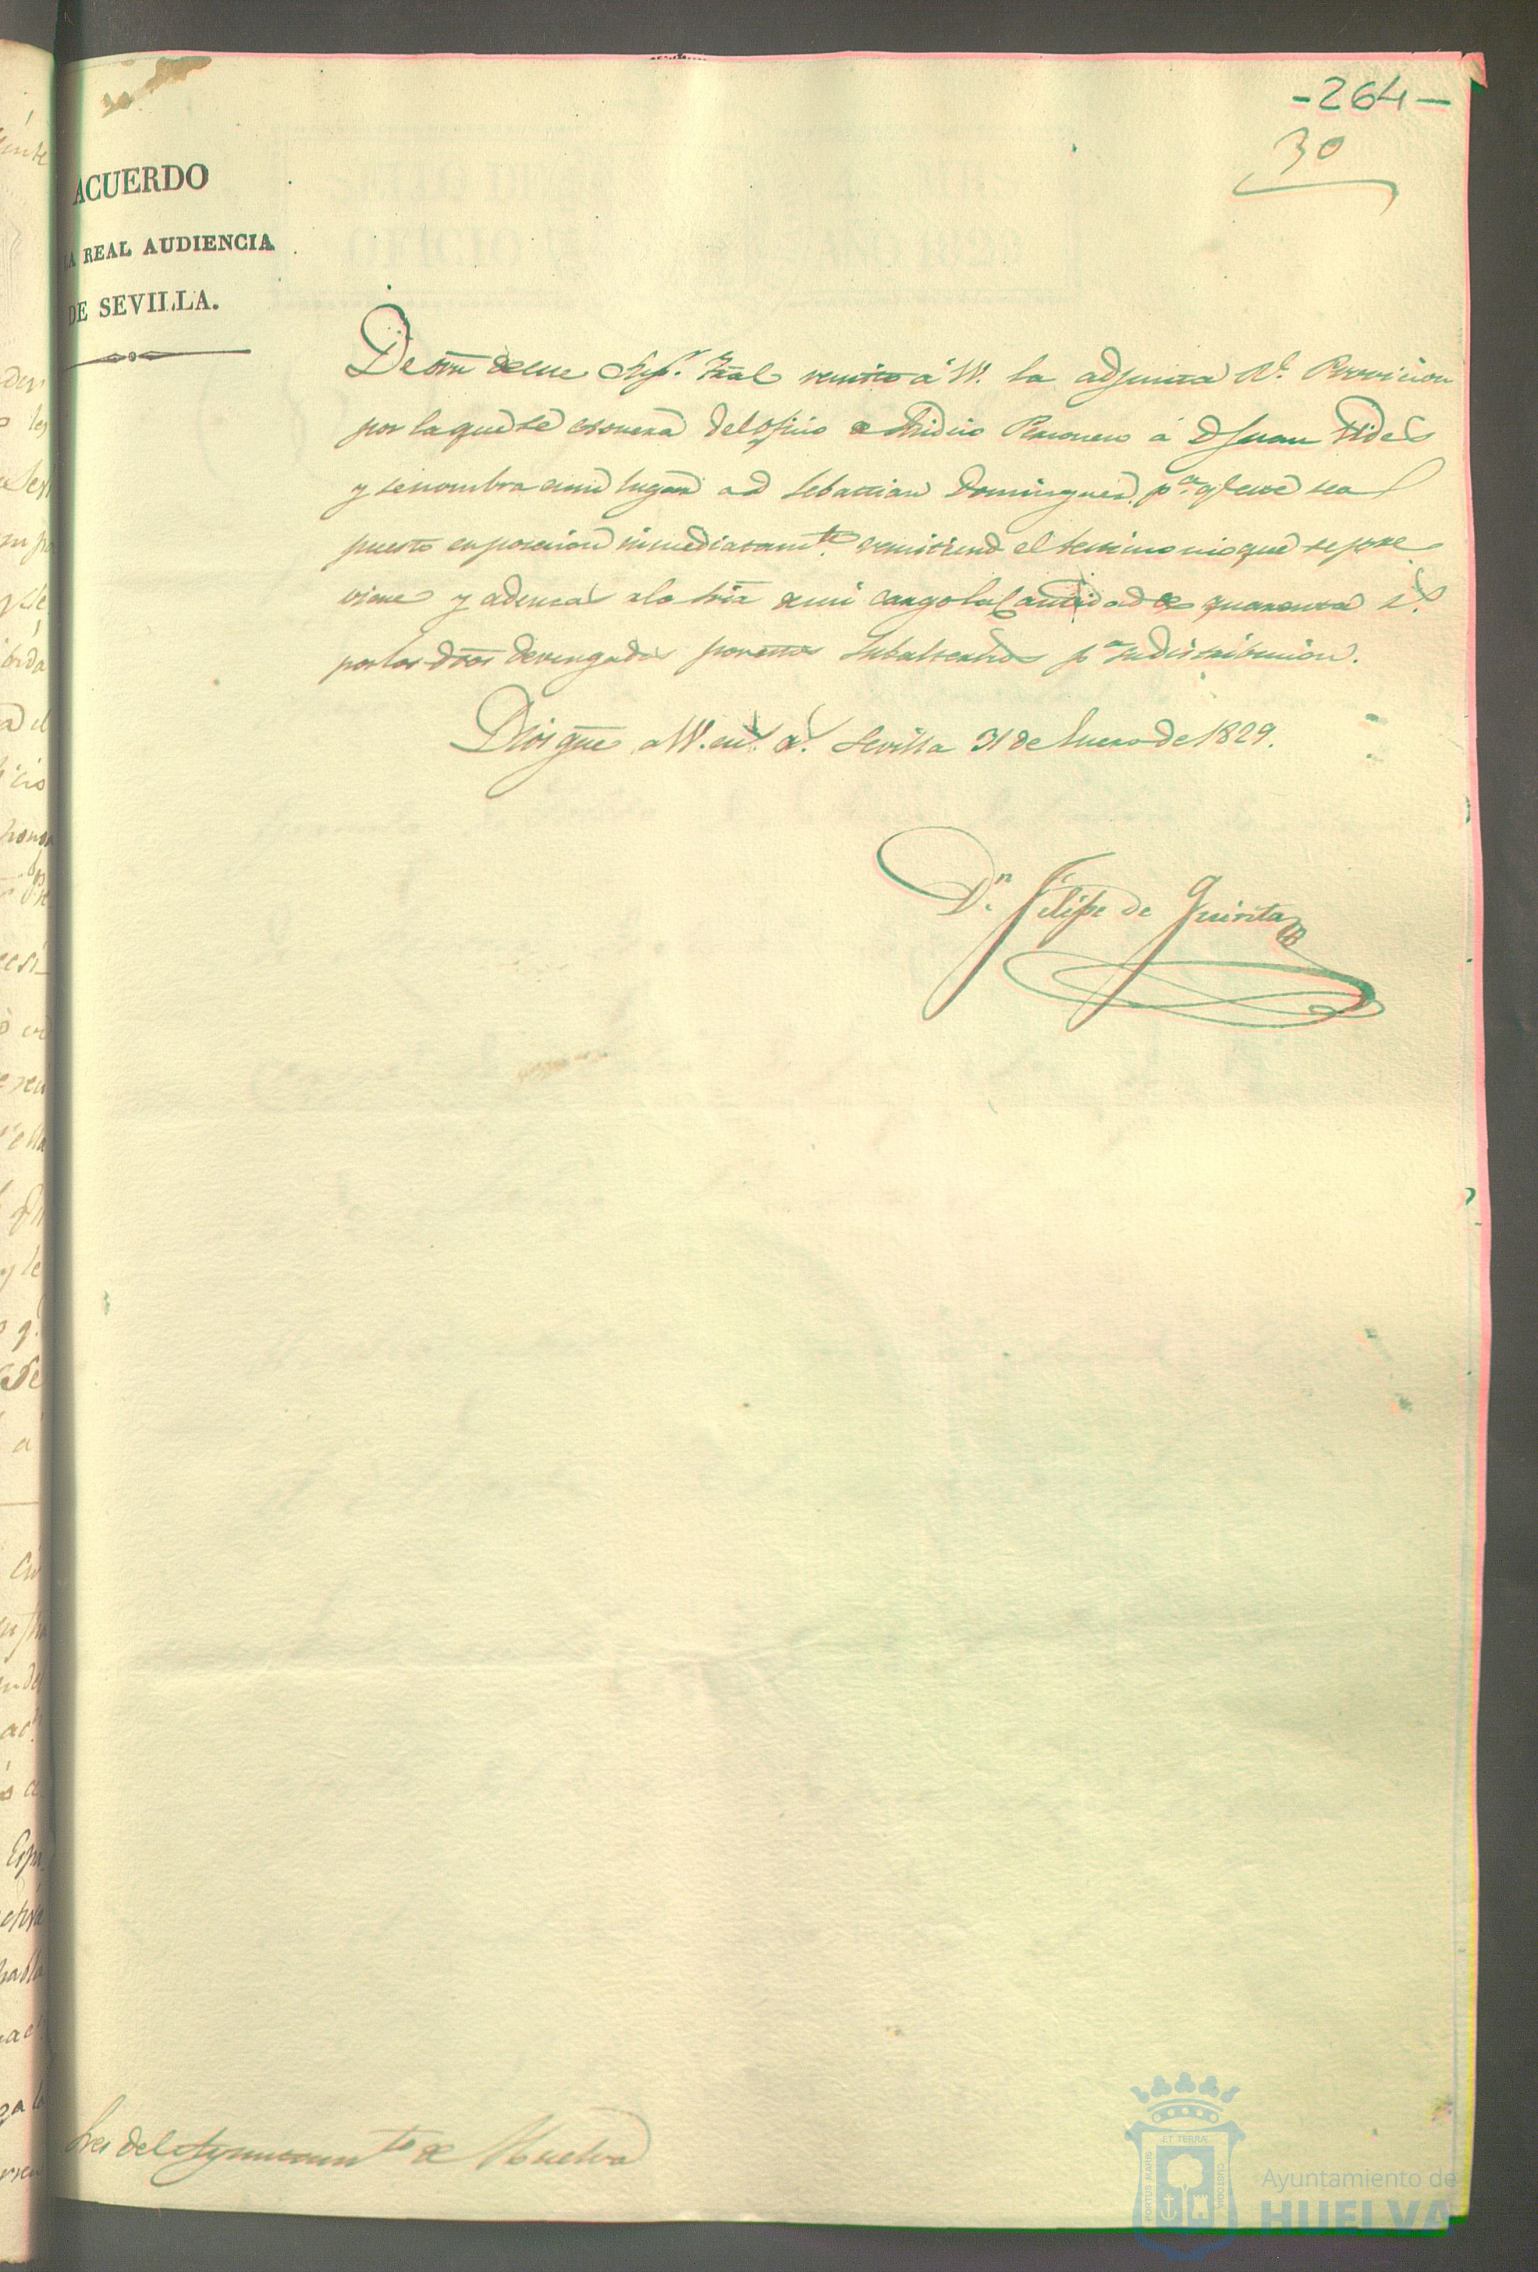 -264-
30
ACUERDO
LA REAL AUDIENCIA
DE SEVILLA.
De orn de este Supr. Tral remito á VV. la adjunta Rl. Provicion
por la que se esonera del oficio de Sindico Personero á D Juan
y se nombra en su lugar a D Sebastian Dominguez, pa. qe ese sea
puesto en posecion inmediatamte. remitiendo el testimonio que se pre
viene y ademas a la Sria de mi cargo la Cantidad de quarenta rs.
por los dros devengados por estos Subalternos pa. su distribucion.
Dios gue a VV. ms. as. Sevilla 31 de Enero de 1829.
Dn. Felipe de Quinta
Sres del Ayuntamto de Huelva
ET TERRÆ
PORTUS MARIS
CUSTODIA
Ayuntamiento de
HUELVA